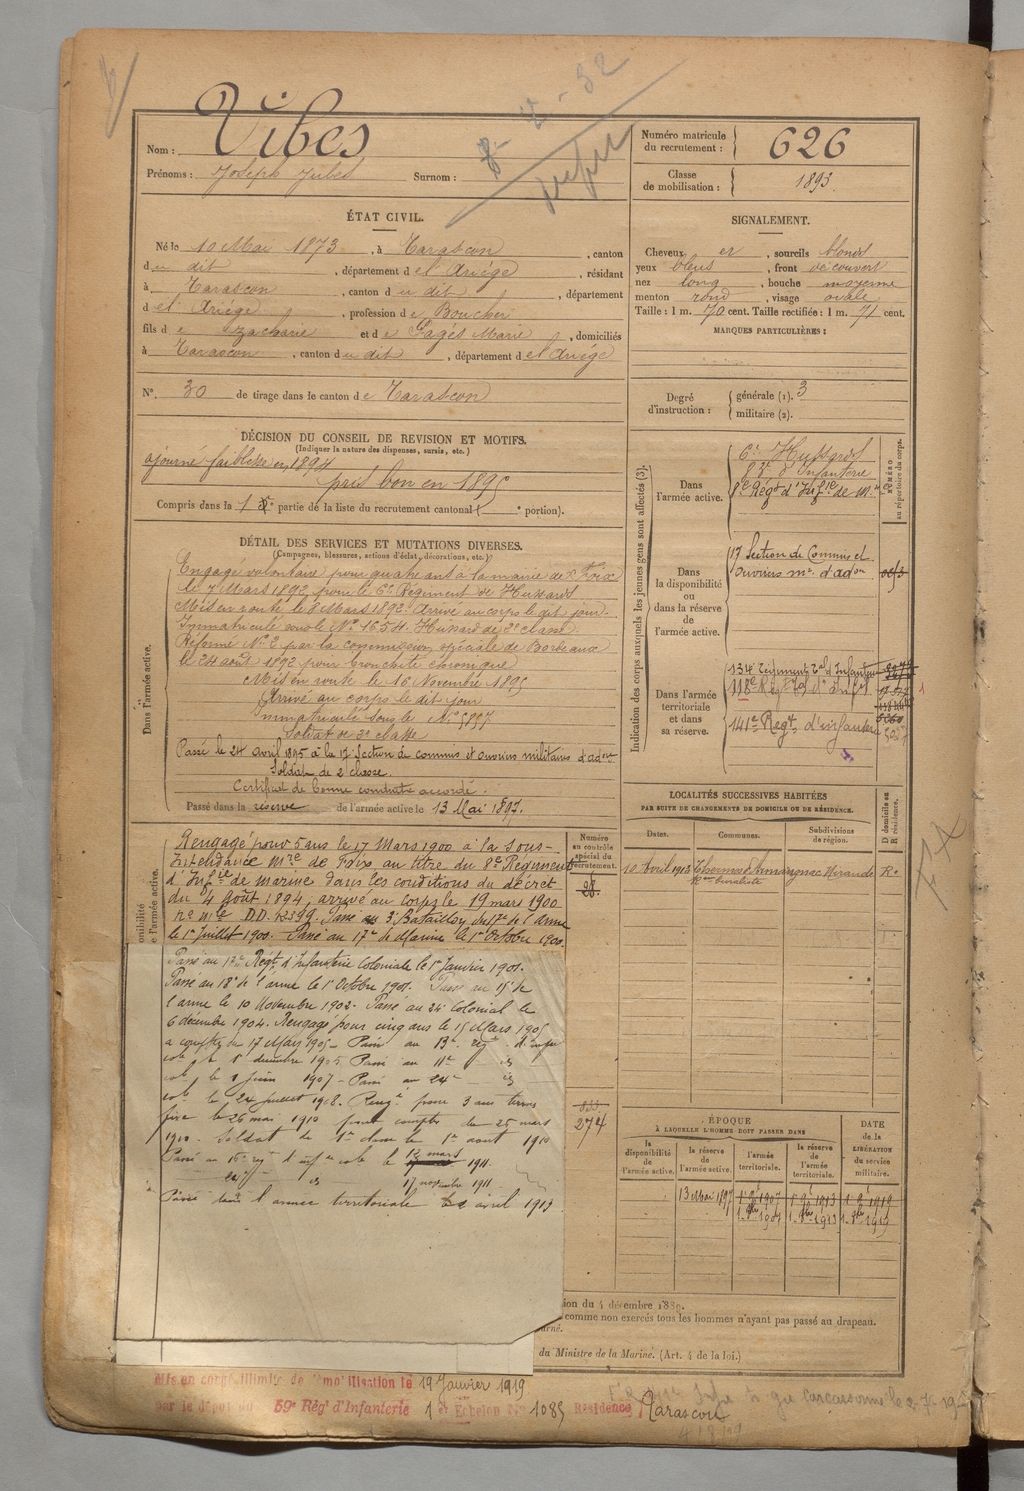 Nom : Vibes
Prénoms : Joseph Jules Surnom :
Numéro matricule du recrutement : 626
Classe de mobilisation : 1893
ÉTAT CIVIL.
Né le 10 Mai 1873, à Tarascon, canton
du dit, département de l'Ariége, résidant
à Tarascon, canton du dit, département
de l'Ariége, profession de Boucher
fils de Zacharie et de Fagés Marie, domiciliés
à Tarascon, canton du dit, département de l'Ariége
N° 30 de tirage dans le canton de Tarascon
SIGNALEMENT.
Cheveux et, sourcils blonds
yeux bleus, front découvert
nez long, bouche moyenne
menton rond, visage ovale
Taille : 1 m. 70 cent. Taille rectifiée : 1 m. 71 cent.
MARQUES PARTICULIÈRES :
Degré d'instruction : générale (1). 3
militaire (2).
DÉCISION DU CONSEIL DE REVISION ET MOTIFS.
(Indiquer la nature des dispenses, sursis, etc.)
ajourné faiblesse en 1894
pris bon en 1895
Compris dans la 1 partie de la liste du recrutement cantonal ( portion).
DÉTAIL DES SERVICES ET MUTATIONS DIVERSES.
(Campagnes, blessures, actions d'éclat, décorations, etc.)
Dans l'armée active.
Engagé volontaire pour quatre ans à la mairie de Foix
le 7 Mars 1892, pour le 6e Régiment de Hussards
Mis en route le 8 Mars 1892. Arrivé au corps le dit jour.
Immatriculé sous le N° 1654. Hussard de 2e classe.
Réformé N° 2 par la commission spéciale de Bordeaux
le 24 août 1892 pour bronchite chronique
Mis en route le 16 Novembre 1895
Arrivé au corps le dit jour
Immatriculé sous le N° 5897
Soldat de 2e classe
Passé le 24 avril 1895 à la 17 Section de commis et ouvriers militaires d'adon
Soldat de 2 classe.
Certificat de bonne conduite accordé.
Passé dans la réserve de l'armée active le 13 Mai 1897.
Indication des corps auxquels les jeunes gens sont affectés (3).
NUMÉRO au répertoire du corps.
Dans l'armée active.
6e Hussards
d'Infanterie
8e Régt d'Infie de Mne
Dans la disponibilité ou dans la réserve de l'armée active.
17 Section de Commis et
ouvriers mre d'adon
Dans l'armée territoriale et dans sa réserve.
134e Régiment Tal d'Infanterie
118e Régt Tal d'Infie
141e Regt d'infanterie
LOCALITÉS SUCCESSIVES HABITÉES
PAR SUITE DE CHANGEMENTS DE DOMICILE OU DE RÉSIDENCE.
Dates. Communes. Subdivisions de région. D domicile ou R résidence.
10 Avril 1913 Mirande R
Numéro au contrôle spécial du recrutement.
28
274
Rengagé pour 5 ans le 17 Mars 1900 à la Sous-
Intendance Mre de Foix au titre du 8e Régiment
d'Infie de marine dans les conditions du décret
du 4 Août 1894, arrivé au corps le 19 mars 1900
no mle D.D. Passé au 3e Bataillon du 17e de l'arme
le 1er Juillet 1900. Passé au 17e de Marine le 1er Octobre 1900.
Passé au Régt d'Infanterie Coloniale le 1er Janvier 1901.
Passé au 18e de l'arme le 1er Octobre 1901. Passé au 15e de
l'arme le 10 Novembre 1902. Passé au 24e Colonial le
6 décembre 1904. Rengagé pour cinq ans le 15 Mars 1905
à compter du 17 Mars 1905 - Passé au 13e regt d'infie
cole le 1er décembre 1905. Passé au 11e id
cole le 1 juin 1907 - Passé au 24e id
cole le 24 juillet 1908. Rengé pour 3 ans terme
fixe le 26 mai 1910 pour compter du 25 mars
1910. Soldat de 1re classe le 1er aout 1910
Passé au 16e regt d'infie cole le 12 mars 1911.
id id 17 novembre 1911
Passé dans l'armée territoriale avril 1913
ÉPOQUE
À LAQUELLE L'HOMME DOIT PASSER DANS
la disponibilité de l'armée active. la réserve de l'armée active. l'armée territoriale. la réserve de l'armée territoriale. DATE de la LIBÉRATION du service militaire.
13 Mai 1897 1907 1913 1919
1904 1913 1919
tion du 4 décembre 1889.
comme non exercés tous les hommes n'ayant pas passé au drapeau.
du Ministre de la Marine. (Art. 4 de la loi.)
Mis en congé illimité de démobilisation le 19 Janvier 1919
par le dépôt du 59e Rég' d'Infanterie 1 er Echelon N° 1085 Résidence Tarascon